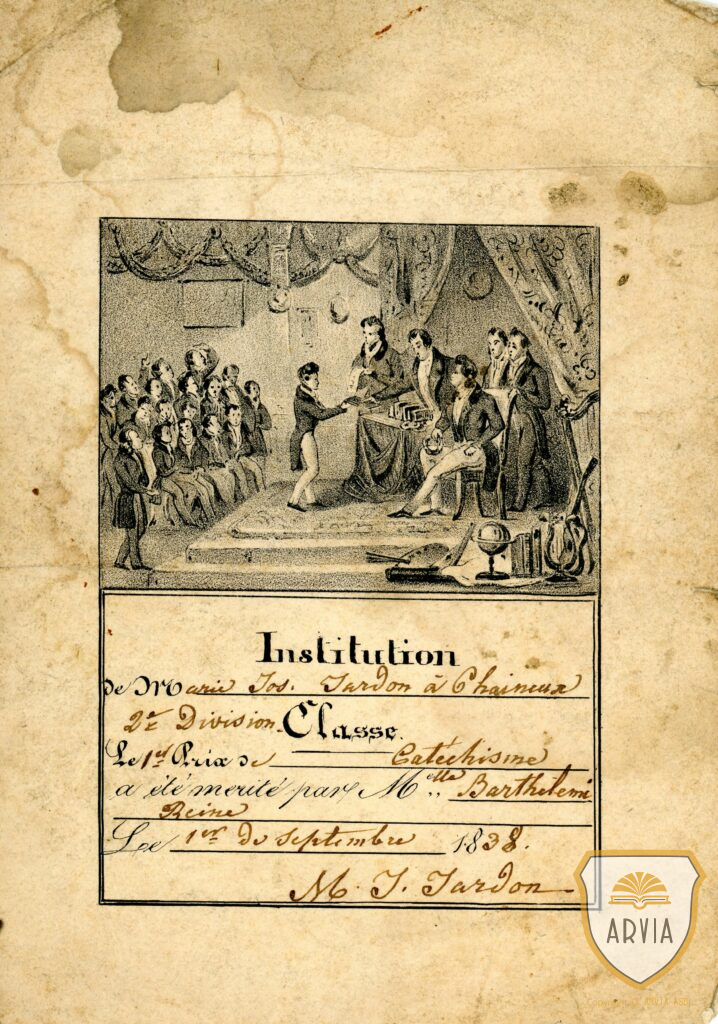 Institution
de Marie Jos. Tardon à Chaineux
2e Division Classe.
Le 1er Prix de Catéchisme
a été merité par Melle Barthelemi
Reine
Le 1er de Septembre 1838.
M. J. Tardon
ARVIA